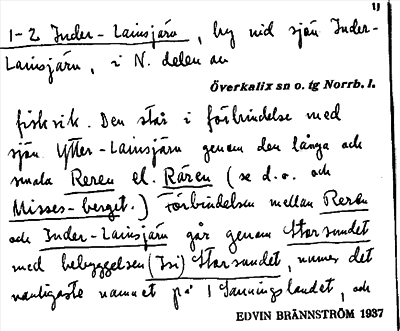 11
1-2 Inder-Lainsjärv, by vid sjön Inder-
Lainsjärv, i N. delen av
Överkalix sn o. tg Norrb. l.
fiskrik. Den står i förbindelse med
sjön Ytter-Lainsjärv genom den långa och
smala Reren el. Rären (se d.o. och
Misses-berget.) Förbindelsen mellan Reren
och Inder-Lainsjärv går genom Storsundet
med bebyggelsen (Isi) Storsundet, numer det
vanligaste namnet på I Lanningslandet, och
EDVIN BRÄNNSTRÖM 1937